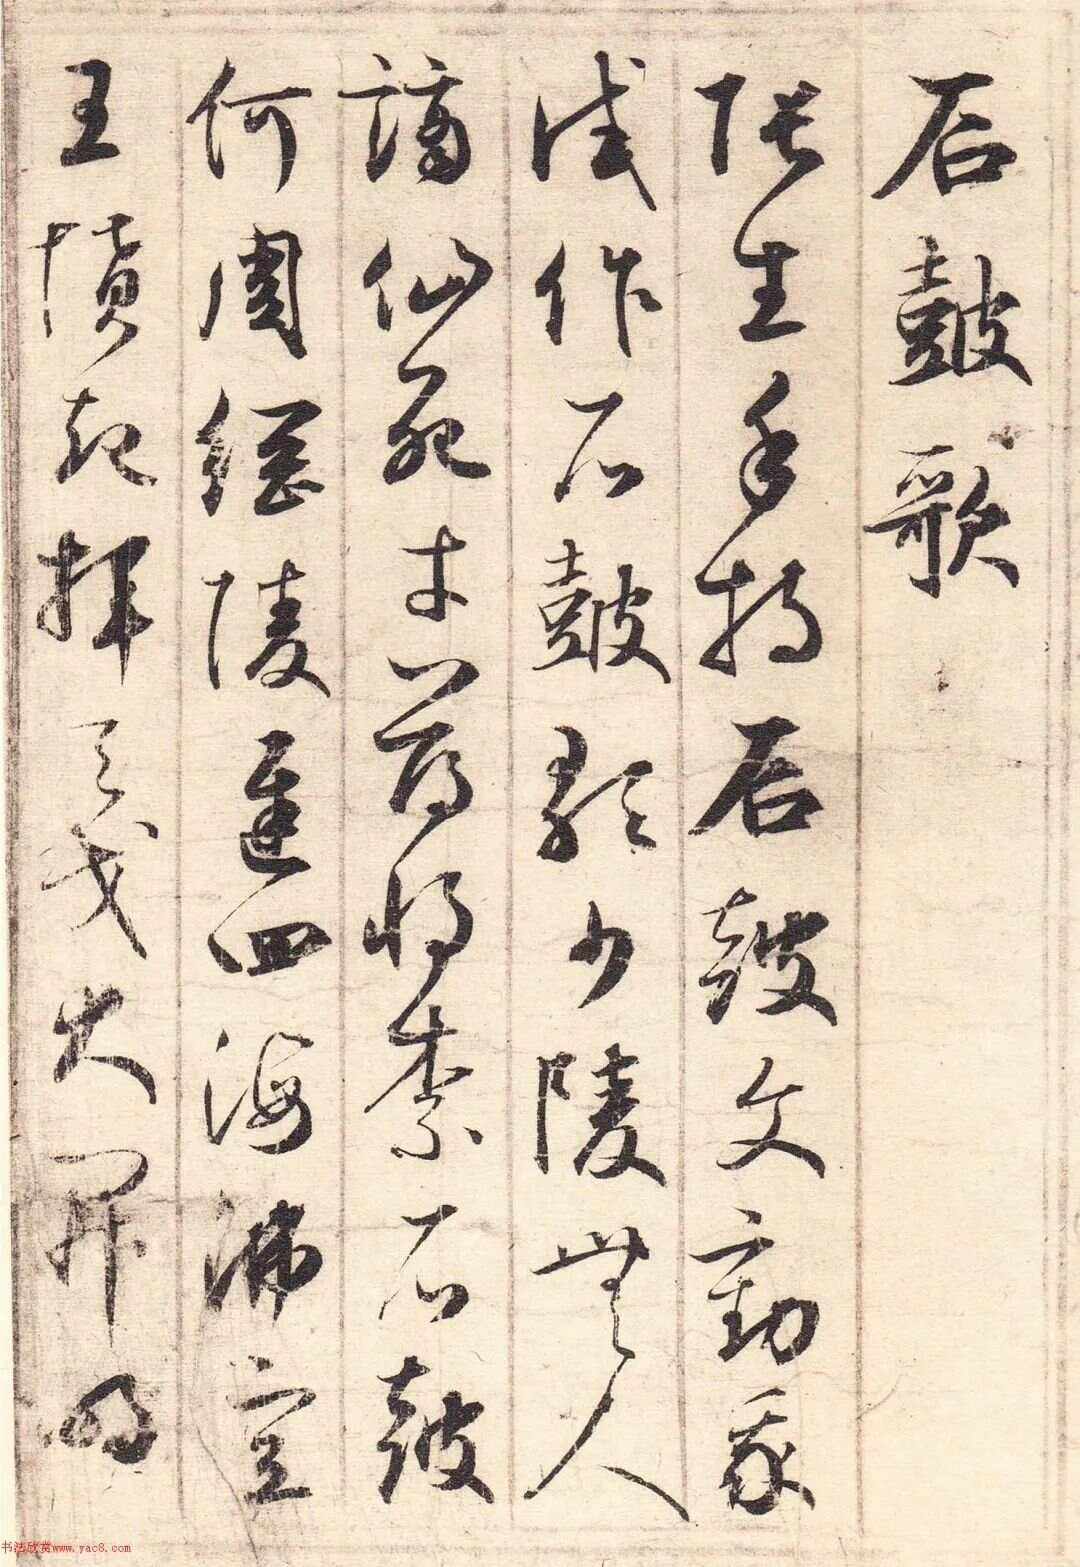 石鼓歌
張生手持石鼓文勸我
試作石鼓歌少陵無人
謫仙死才薄將奈石鼓
何周綱陵遲四海沸宣
王憤起揮天戈大開明
书法欣赏www.yac8.com